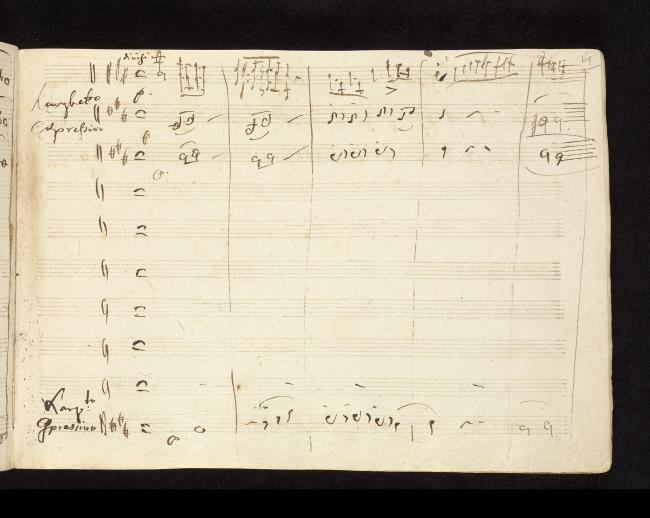 divisi
Larghetto
Espressivo
p.
Larg.to
Espressivo